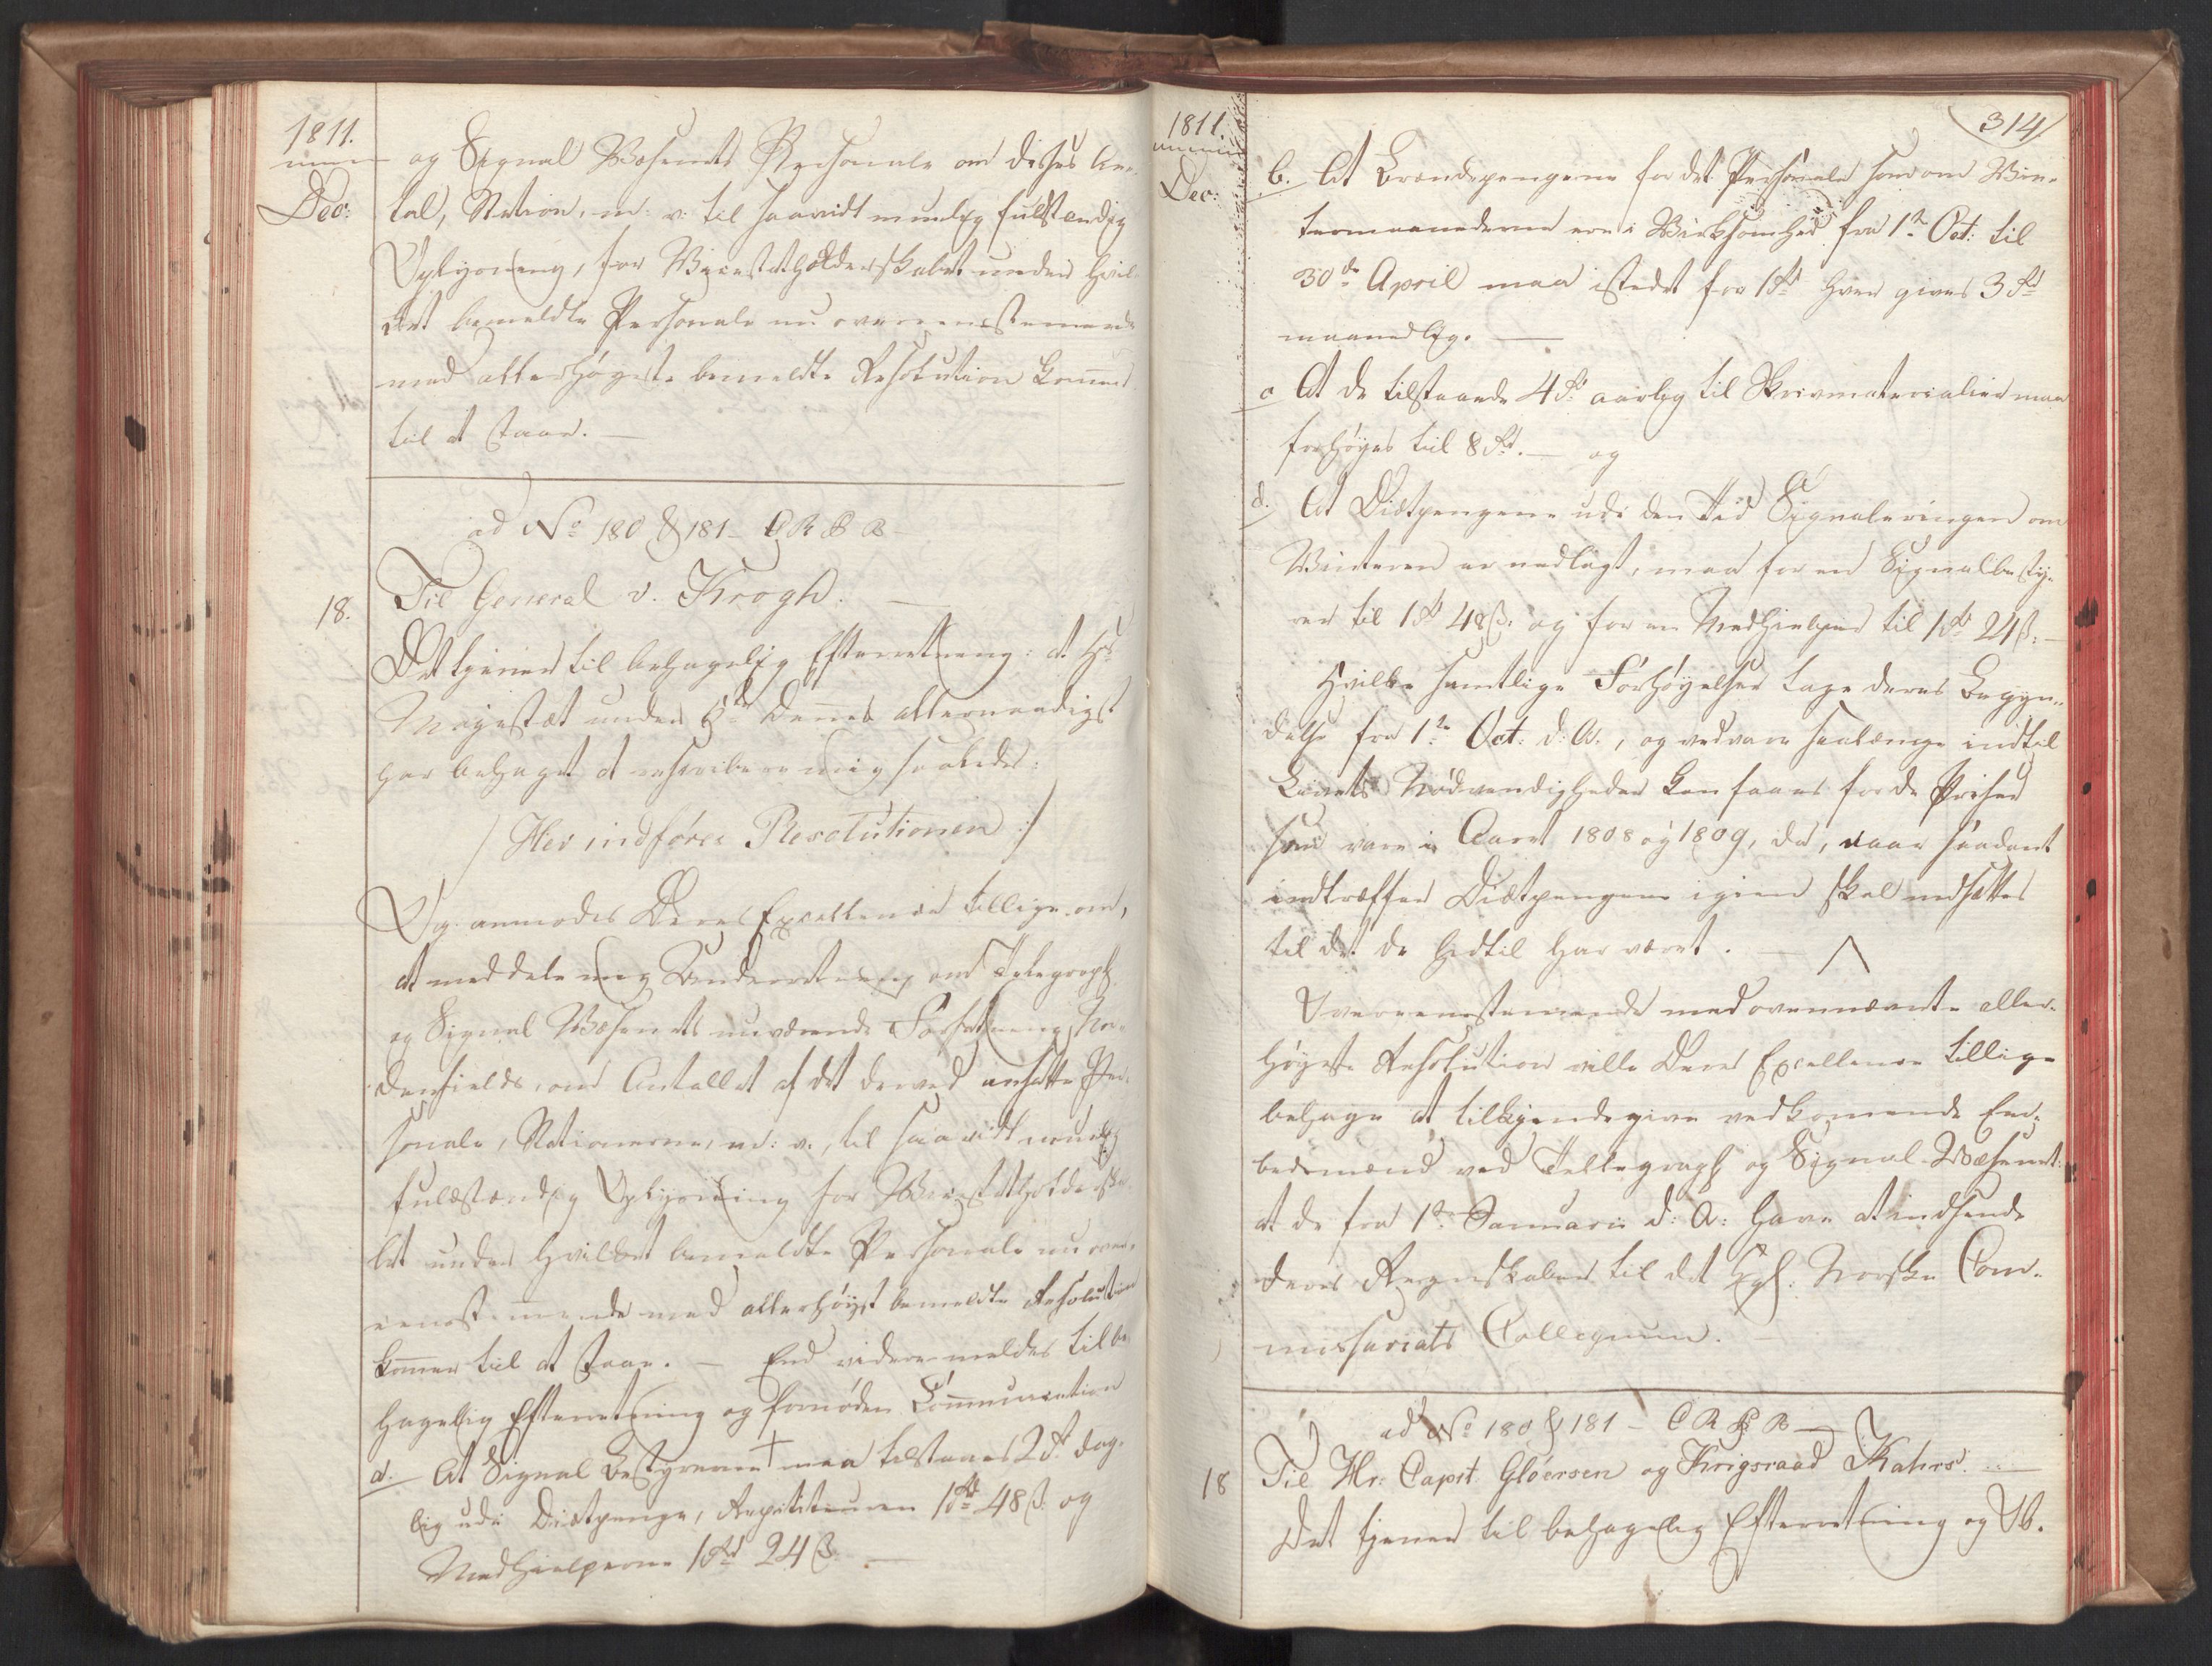 1811.
Dec:
og Signal Væsenets Personale om disses An-
tal, Station, m: v: til saavidt muelig fulstændig
Oplysning, for Vicestatholderskabet under hvil-
det bemeldte Personale nu overeensstemmende
med allerhøigste bemeldte Resolution kommer
til at staae. —
ad No 180 & 181 - C R B B -
18.
Til General v. Krogh. —
Det tjener til behagelig Efterretning: at Hs
Majestæt under Dennes allernaadigst
har behaget at rescribere mig saaledes:
/: Her indføres Resolutionen :/
Og anmodes Deres Excellence tillige om,
at meddele mig Underretning om Telegraph
og Signal Væsenets nuværende Forfatning Nor-
denfields, om Antallet af det derved ansatte Per-
sonale, Stationerne, m: v:, til saavidt muelig
fulstændig Oplysning for Vicestatholderska-
bet under hvilket bemeldte Personale nu over-
eenstemmende med allerhøist bemeldte Resolution
kommer til at staae. — End videre meldes til be-
hagelig Efterretning og fornøden Communication
a. — At Signal Bestyrerne + maa tilstaaes 2 Rd dag-
lig udi Diætpenge, Repetiteuren 1 Rd 48 ß og
Medhielperne 1 Rd 24 ß. —
1811.
Dec:
314
b. At Brændepengene for det Personale som om Vin-
termaanederne ere i Virksomhed fra 1te Oct: til
30de April maa istedet for 1 Rd hver gives 3 Rd
maanedlig. —
c At de tilstaaede 4 Rd aarlig til Skrivmaterialier maa
forhøyes til 8 Rd. — og
d. At Diætpengene udi den Tid Signaleringen om
Vinteren er nedlagt, maa for en Signalbesty-
rer til 1 Rd 48 ß. og for en Medhielper til 1 Rd 24 ß. —
Hvilke samtlige Forhøyelser tage deres Begyn-
delse fra 1te Oct: d: A., og vedvare saalænge indtil
Livets Nødvendigheder kan faaes for de Priser
som vare i Aaret 1808 og 1809, da, naar saadant
indtræffer Diætpengene igien skal nedsættes
til det de hidtil har været. —
Overeensstemmende med ovennævnte aller-
høyeste Resolution ville Deres Excellence tillige
behage at tilkjendegive vedkommende Em-
bedsmænd ved Tellegraph og Signal-Væsenet:
at de fra 1te Januarii d: A: have at indsende
deres Regnskaber til det Kgl: Norske Com-
missariats Collegium. —
ad No 180 & 181 - C R B B —
18
Til Hr: Capit. Gløersen og Krigsraad Kahrs. —
Det tjener til behagelig Efterretning og Ob-